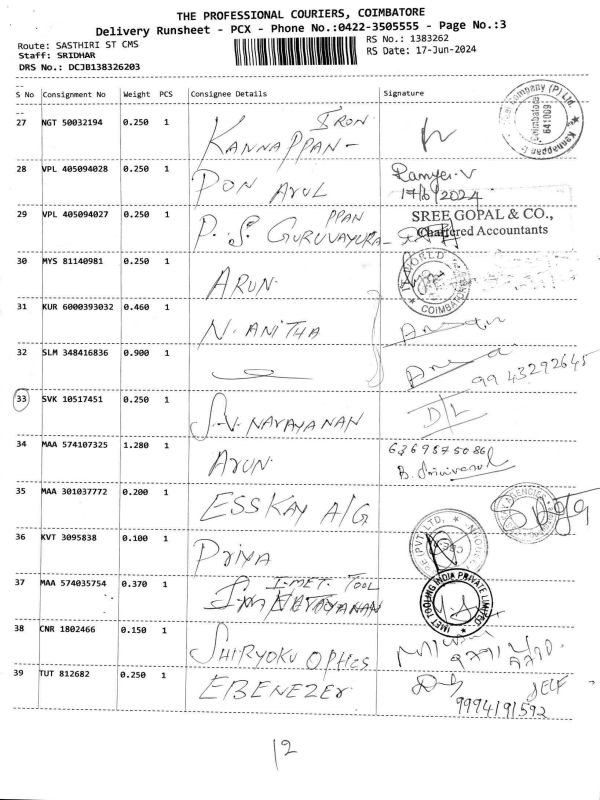 THE PROFESSIONAL COURIERS, COIMBATORE
Delivery Runsheet - PCX - Phone No.:0422-3505555 - Page No.:3
Route: SASTHIRI ST CMS
RS No.: 1383262
Staff: SRIDHAR
RS Date: 17-Jun-2024
DRS No.: DCJB138326203
S No Consignment No Weight PCS Consignee Details Signature
27 NGT 50032194 0.250 1 KANNAPPAN - IRON
28 VPL 405094028 0.250 1 PON ARUL
17/6/2024
29 VPL 405094027 0.250 1 P. S. GURUVAYURAPPAN
SREE GOPAL & CO.,
Chartered Accountants
30 MYS 81140981 0.250 1 ARUN
IT WORLD
COIMBATORE
31 KUR 6000393032 0.460 1 N. ANITHA
32 SLM 348416836 0.900 1
9943292645
33 SVK 10517451 0.250 1 S.V. NARAYANAN D/L
34 MAA 574107325 1.280 1 ARUN
B. Srinivasul
35 MAA 301037772 0.200 1 ESSKAY A/G
36 KVT 3095838 0.100 1 PRIYA
37 MAA 574035754 0.370 1 I-MET. TOOL
IMET TOOLING INDIA PRIVATE LIMITED
38 CNR 1802466 0.150 1 SHIRYOKU OPTICS
39 TUT 812682 0.250 1 EBENEZER SELF
9994191592
12